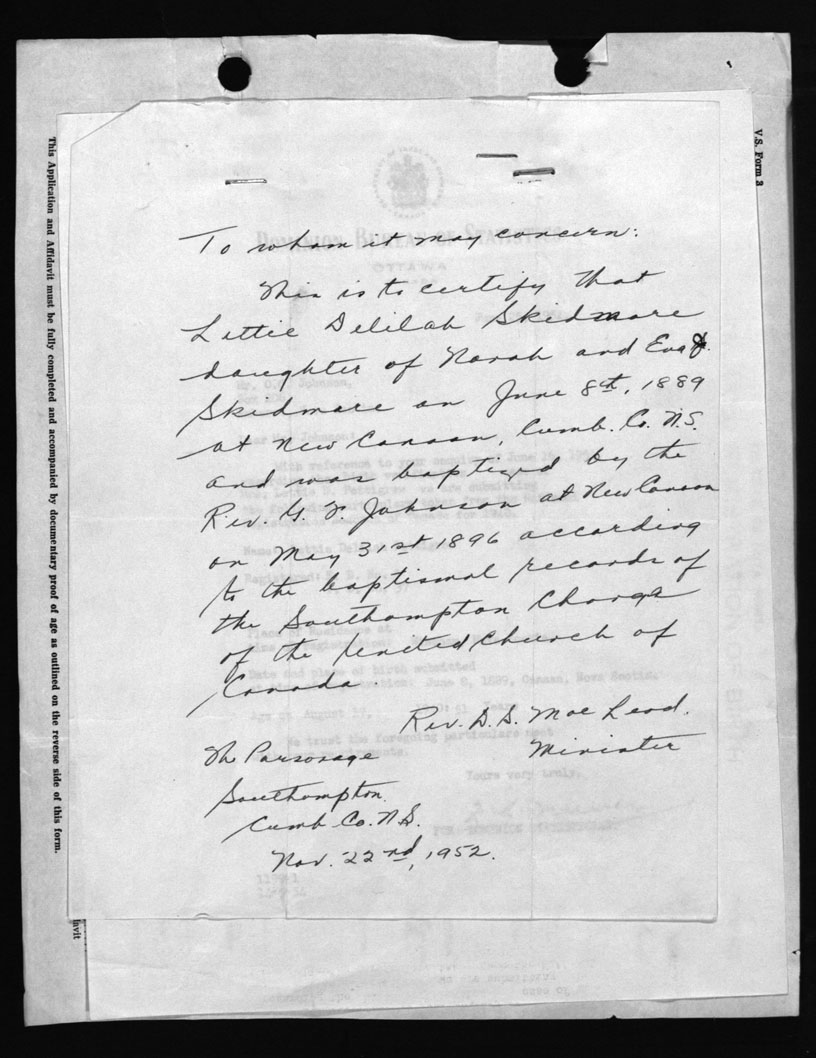 To whom it may concern:
This is to certify that
Lettie Delilah Skidmore
daughter of Norah and Eva J.
Skidmore on June 8th, 1889
at New Canaan, Cumb. Co. N.S.
and was baptized by the
Rev. G. F. Johnson at New Canaan
on May 31st 1896 according
to the baptismal records of
the Southampton Charge
of the United Church of
Canada
Rev. D. D. MacLeod.
Minister
The Parsonage
Southampton.
Cumb. Co. N.S.
Nov. 22nd, 1952.
This Application and Affidavit must be fully completed and accompanied by documentary proof of age as outlined on the reverse side of this form.
V.S. Form 3
DOMINION BUREAU OF STATISTICS
OTTAWA
Johnson,
Johnson:
With reference to your
Date and place of birth submitted
June 8, 1889, Canaan, Nova Scotia.
Age at August
trust the foregoing particulars meet
Yours very truly,
FOR DOMINION